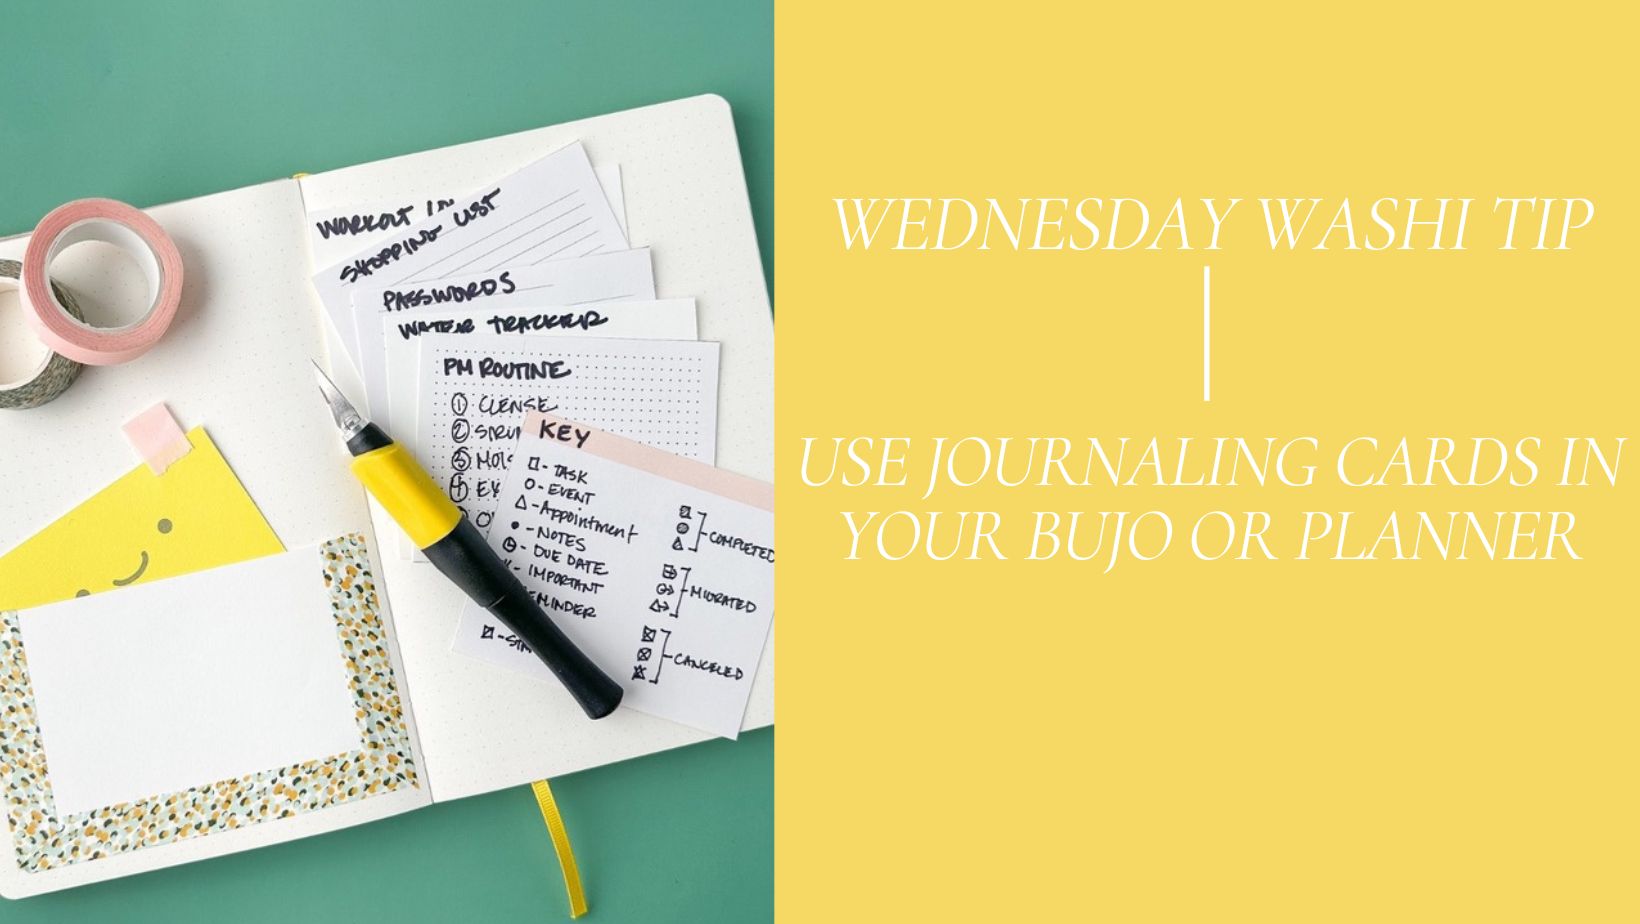 WORKOUT
SHOPPING LIST
PASSWORDS
WATER TRACKER
PM ROUTINE
1 CLENSE
2
3
4
KEY
- TASK
- EVENT
- Appointment
- NOTES
- DUE DATE
- IMPORTANT
- COMPLETED
- MIGRATED
- CANCELED
WEDNESDAY WASHI TIP
USE JOURNALING CARDS IN
YOUR BUJO OR PLANNER